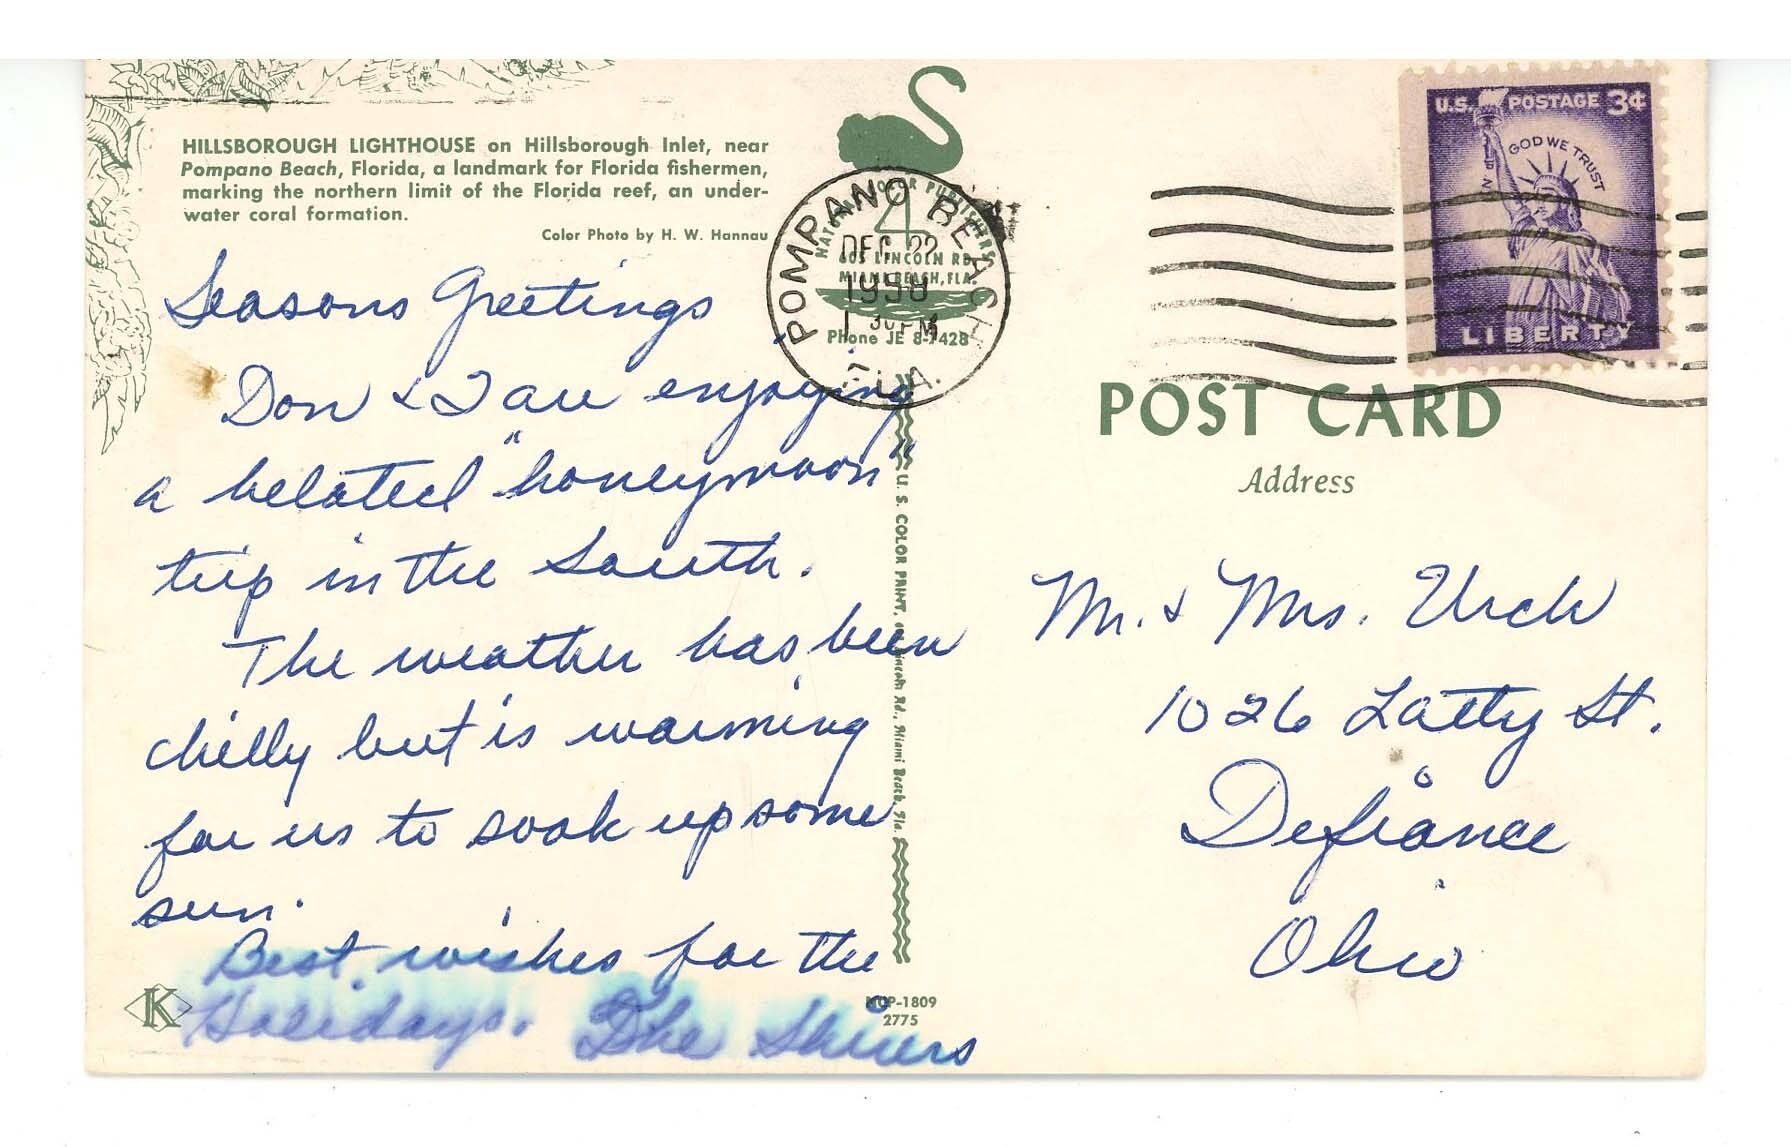 HILLSBOROUGH LIGHTHOUSE on Hillsborough Inlet, near
Pompano Beach, Florida, a landmark for Florida fishermen,
marking the northern limit of the Florida reef, an under-
water coral formation.
Color Photo by H. W. Hannau
Seasons Greetings
Don & I are enjoying
a belated "honeymoon"
trip in the South.
The weather has been
chilly but is warming
for us to soak up some
sun.
Best wishes for the
Holidays. The
K
-1809
2775
POMPANO BEACH
DEC 22
1958
1 30 PM
FLA.
605 LINCOLN RD.
MIAMI BEACH, FLA.
Phone JE 8-7428
U. S. COLOR PRINT, Lincoln Rd., Miami Beach, Fla.
U.S. POSTAGE 3¢
IN GOD WE TRUST
LIBERTY
POST CARD
Address
Mr. & Mrs. Urch
1026 Latty St.
Defiance
Ohio